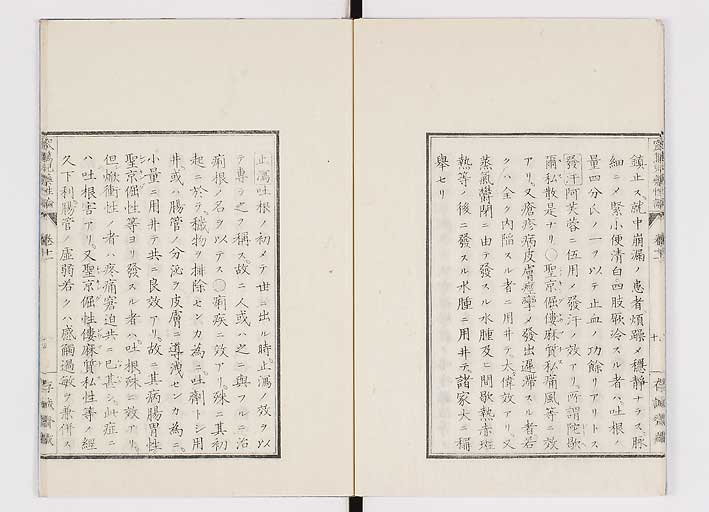 鎮止ス就中崩漏ノ患者煩躁〆穏靜ナラス脉
細ニ〆緊小便清白四肢厥冷スル者ハ吐根ノ
量四分氏ノ一ヲ以テ止血ノ功餘リアリトス
發汗阿芙蓉ニ伍用〆發汗ノ效アリ所謂陀歇
爾私散是ナリ○聖京倔僂麻質私痛風等ニ效
アリ又瘡疹病皮膚痙攣〆發出遲滞スル者若
クハ全ク内陥スル者ニ用井テ大偉效アリ又
蒸氣欝閉ニ由テ發スル水腫及ヒ間歇熱赤斑
熱等ノ後ニ發スル水腫ニ用井テ諸家大ニ稱
舉セリ
止瀉吐根ノ初メテ世ニ出ル時止瀉ノ效ヲ以
テ專ラ之ヲ稱ス故ニ人或ハ之ニ與フルニ治
痢根ノ名ヲ以テス○痢疾ニ效アリ殊ニ其初
起ニ於テ穢物ヲ排除センカ為ニ吐劑トシ用
井或ハ腸管ノ分泌ヲ皮膚ニ導洩センカ為ニ
小量ニ用井テ共ニ良效アリ故ニ其病腸胃性
聖京倔性等ヨリ發スル者ハ吐根殊ニ效アリ
但焮衝性ノ者ハ疼痛窘迫共ニ已甚シ此症ニ
ハ吐根害アリ又聖京倔性僂麻質私性等ノ經
久下利腸管ノ虚弱若クハ感觸過敏ヲ兼併ス